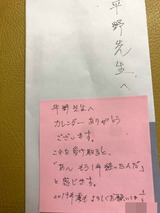 平野先生へ
平野先生へ
カレンダーありがとう
ございます。
これを受け取ると、
「あぁ もう1年経ったんだ」
と感じます。
2019年度もよろしくお願いします